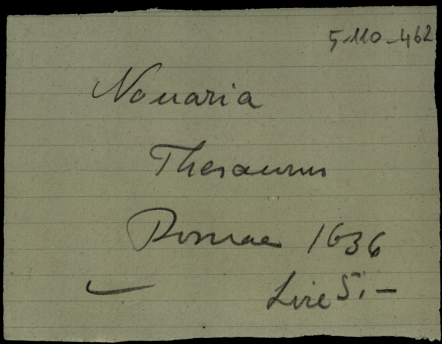 5-110-462
Nouaria
Thesaurus
Romae 1636
Lire 5.-